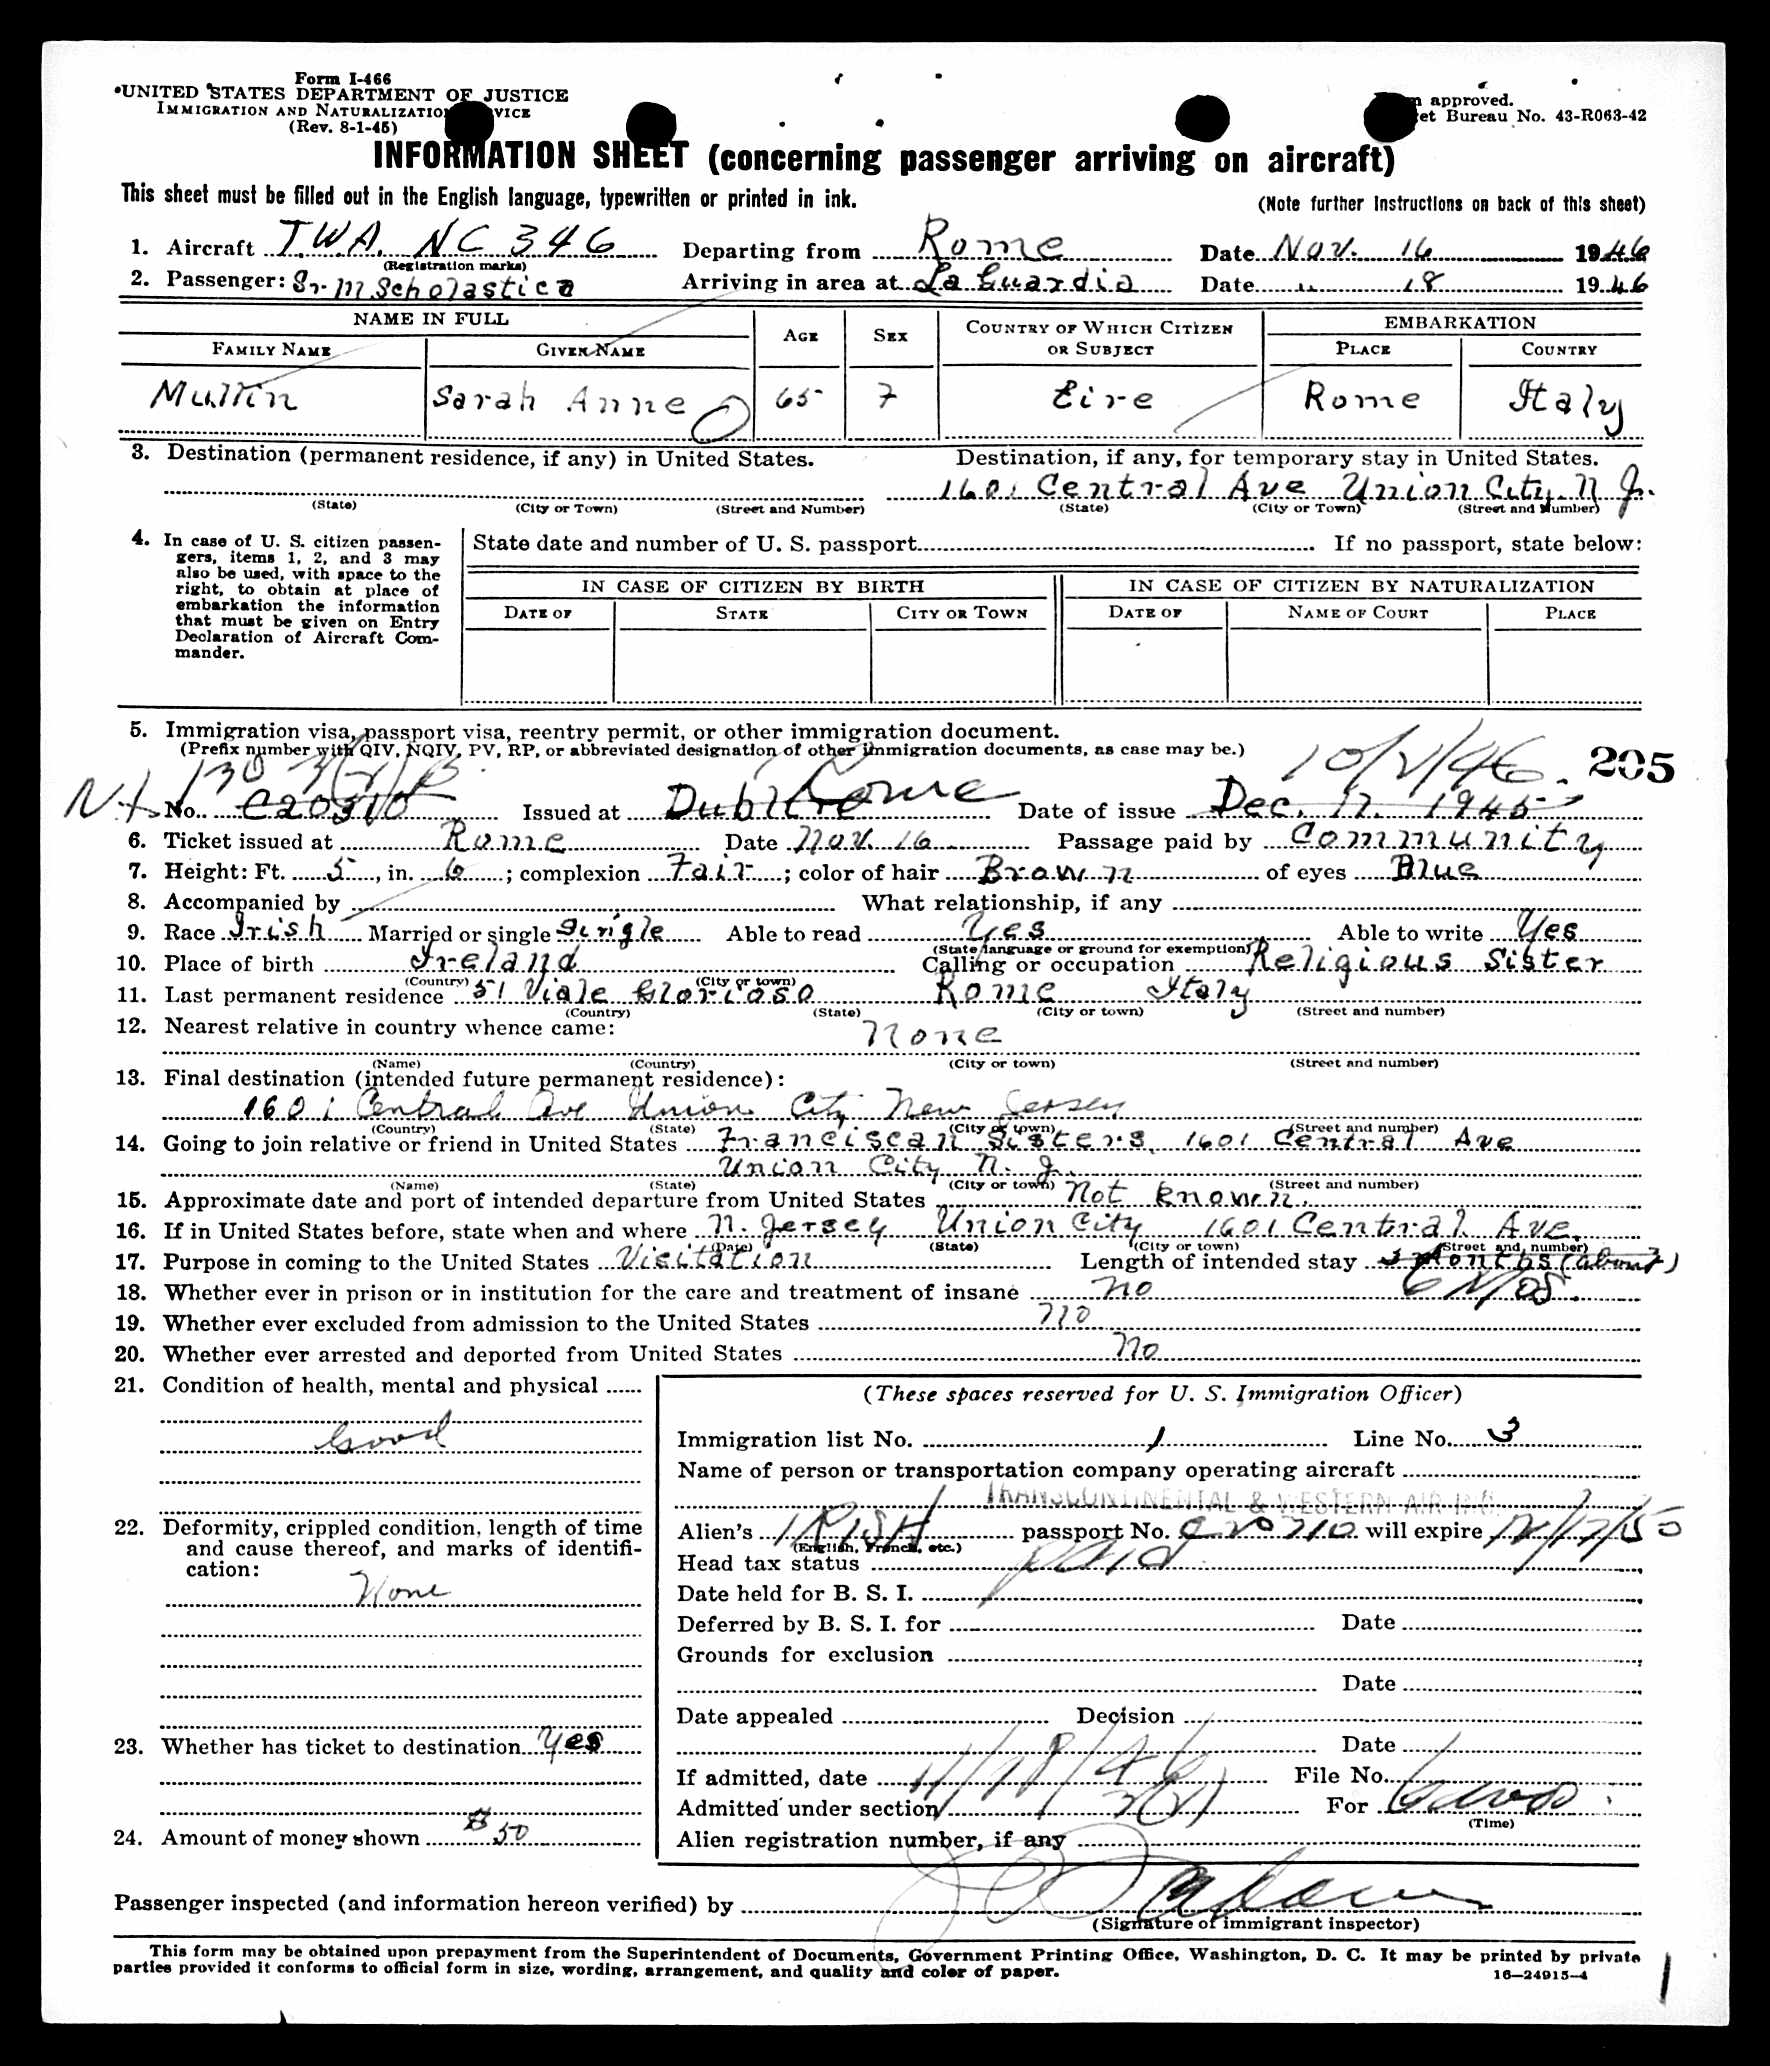 Form I-466
UNITED STATES DEPARTMENT OF JUSTICE
IMMIGRATION AND NATURALIZATION
(Rev. 8-1-45)
approved.
Bureau No. 43-R063-42
INFORMATION SHEET (concerning passenger arriving on aircraft)
This sheet must be filled out in the English language, typewritten or printed in ink.
(Note further instructions on back of this sheet)
1. Aircraft T.W.A. NC 346 Departing from Rome Date Nov. 16 1946
(Registration marks)
2. Passenger: Sr. M Scholastica Arriving in area at La Guardia Date " 18 1946
NAME IN FULL AGE SEX COUNTRY OF WHICH CITIZEN OR SUBJECT EMBARKATION
FAMILY NAME GIVEN NAME PLACE COUNTRY
Mullin Sarah Anne 65 F Eire Rome Italy
3. Destination (permanent residence, if any) in United States. Destination, if any, for temporary stay in United States.
1601 Central Ave Union City N J.
(State) (City or Town) (Street and Number) (State) (City or Town) (Street and Number)
4. In case of U. S. citizen passengers, items 1, 2, and 3 may
also be used, with space to the
right, to obtain at place of
embarkation the information
that must be given on Entry
Declaration of Aircraft Commander.
State date and number of U. S. passport If no passport, state below:
IN CASE OF CITIZEN BY BIRTH IN CASE OF CITIZEN BY NATURALIZATION
DATE OF STATE CITY OR TOWN DATE OF NAME OF COURT PLACE
5. Immigration visa, passport visa, reentry permit, or other immigration document.
(Prefix number with QIV, NQIV, PV, RP, or abbreviated designation of other immigration documents, as case may be.)
10/2/46 205
No. C20310 Issued at Rome Date of issue Dec. 17. 1945
6. Ticket issued at Rome Date Nov. 16 Passage paid by Community
7. Height: Ft. 5, in. 6; complexion Fair; color of hair Brown of eyes Blue
8. Accompanied by What relationship, if any
9. Race Irish Married or single Single Able to read Yes Able to write Yes
(State language or ground for exemption)
10. Place of birth Ireland Calling or occupation Religious Sister
(Country) (City or town)
11. Last permanent residence 51 Viale Glorioso Rome Italy
(Country) (State) (City or town) (Street and number)
12. Nearest relative in country whence came: None
(Name) (Country) (City or town) (Street and number)
13. Final destination (intended future permanent residence):
1601 Central Ave Union City New Jersey
(Country) (State) (City or town) (Street and number)
14. Going to join relative or friend in United States Franciscan Sisters, 1601 Central Ave
Union City N. J.
(Name) (State) (City or town) (Street and number)
15. Approximate date and port of intended departure from United States Not known.
16. If in United States before, state when and where N. Jersey Union City 1601 Central Ave.
(Date) (State) (City or town) (Street and number)
17. Purpose in coming to the United States Visitation Length of intended stay 3 months (about)
6 Mos.
18. Whether ever in prison or in institution for the care and treatment of insane no
19. Whether ever excluded from admission to the United States no
20. Whether ever arrested and deported from United States no
21. Condition of health, mental and physical
Good
22. Deformity, crippled condition, length of time
and cause thereof, and marks of identification:
None
23. Whether has ticket to destination Yes
24. Amount of money shown $50
(These spaces reserved for U. S. Immigration Officer)
Immigration list No. 1 Line No. 3
Name of person or transportation company operating aircraft
TRANSCONTINENTAL & WESTERN AIR INC.
Alien's IRISH passport No. C20710 will expire 12/17/50
(English, French, etc.)
Head tax status paid
Date held for B. S. I.
Deferred by B. S. I. for Date
Grounds for exclusion
Date
Date appealed Decision
Date
If admitted, date 11/18/46 File No.
Admitted under section 3(2) For 6 mos
(Time)
Alien registration number, if any
Passenger inspected (and information hereon verified) by
(Signature of immigrant inspector)
This form may be obtained upon prepayment from the Superintendent of Documents, Government Printing Office, Washington, D. C. It may be printed by private
parties provided it conforms to official form in size, wording, arrangement, and quality and color of paper.
16—24915-4
1